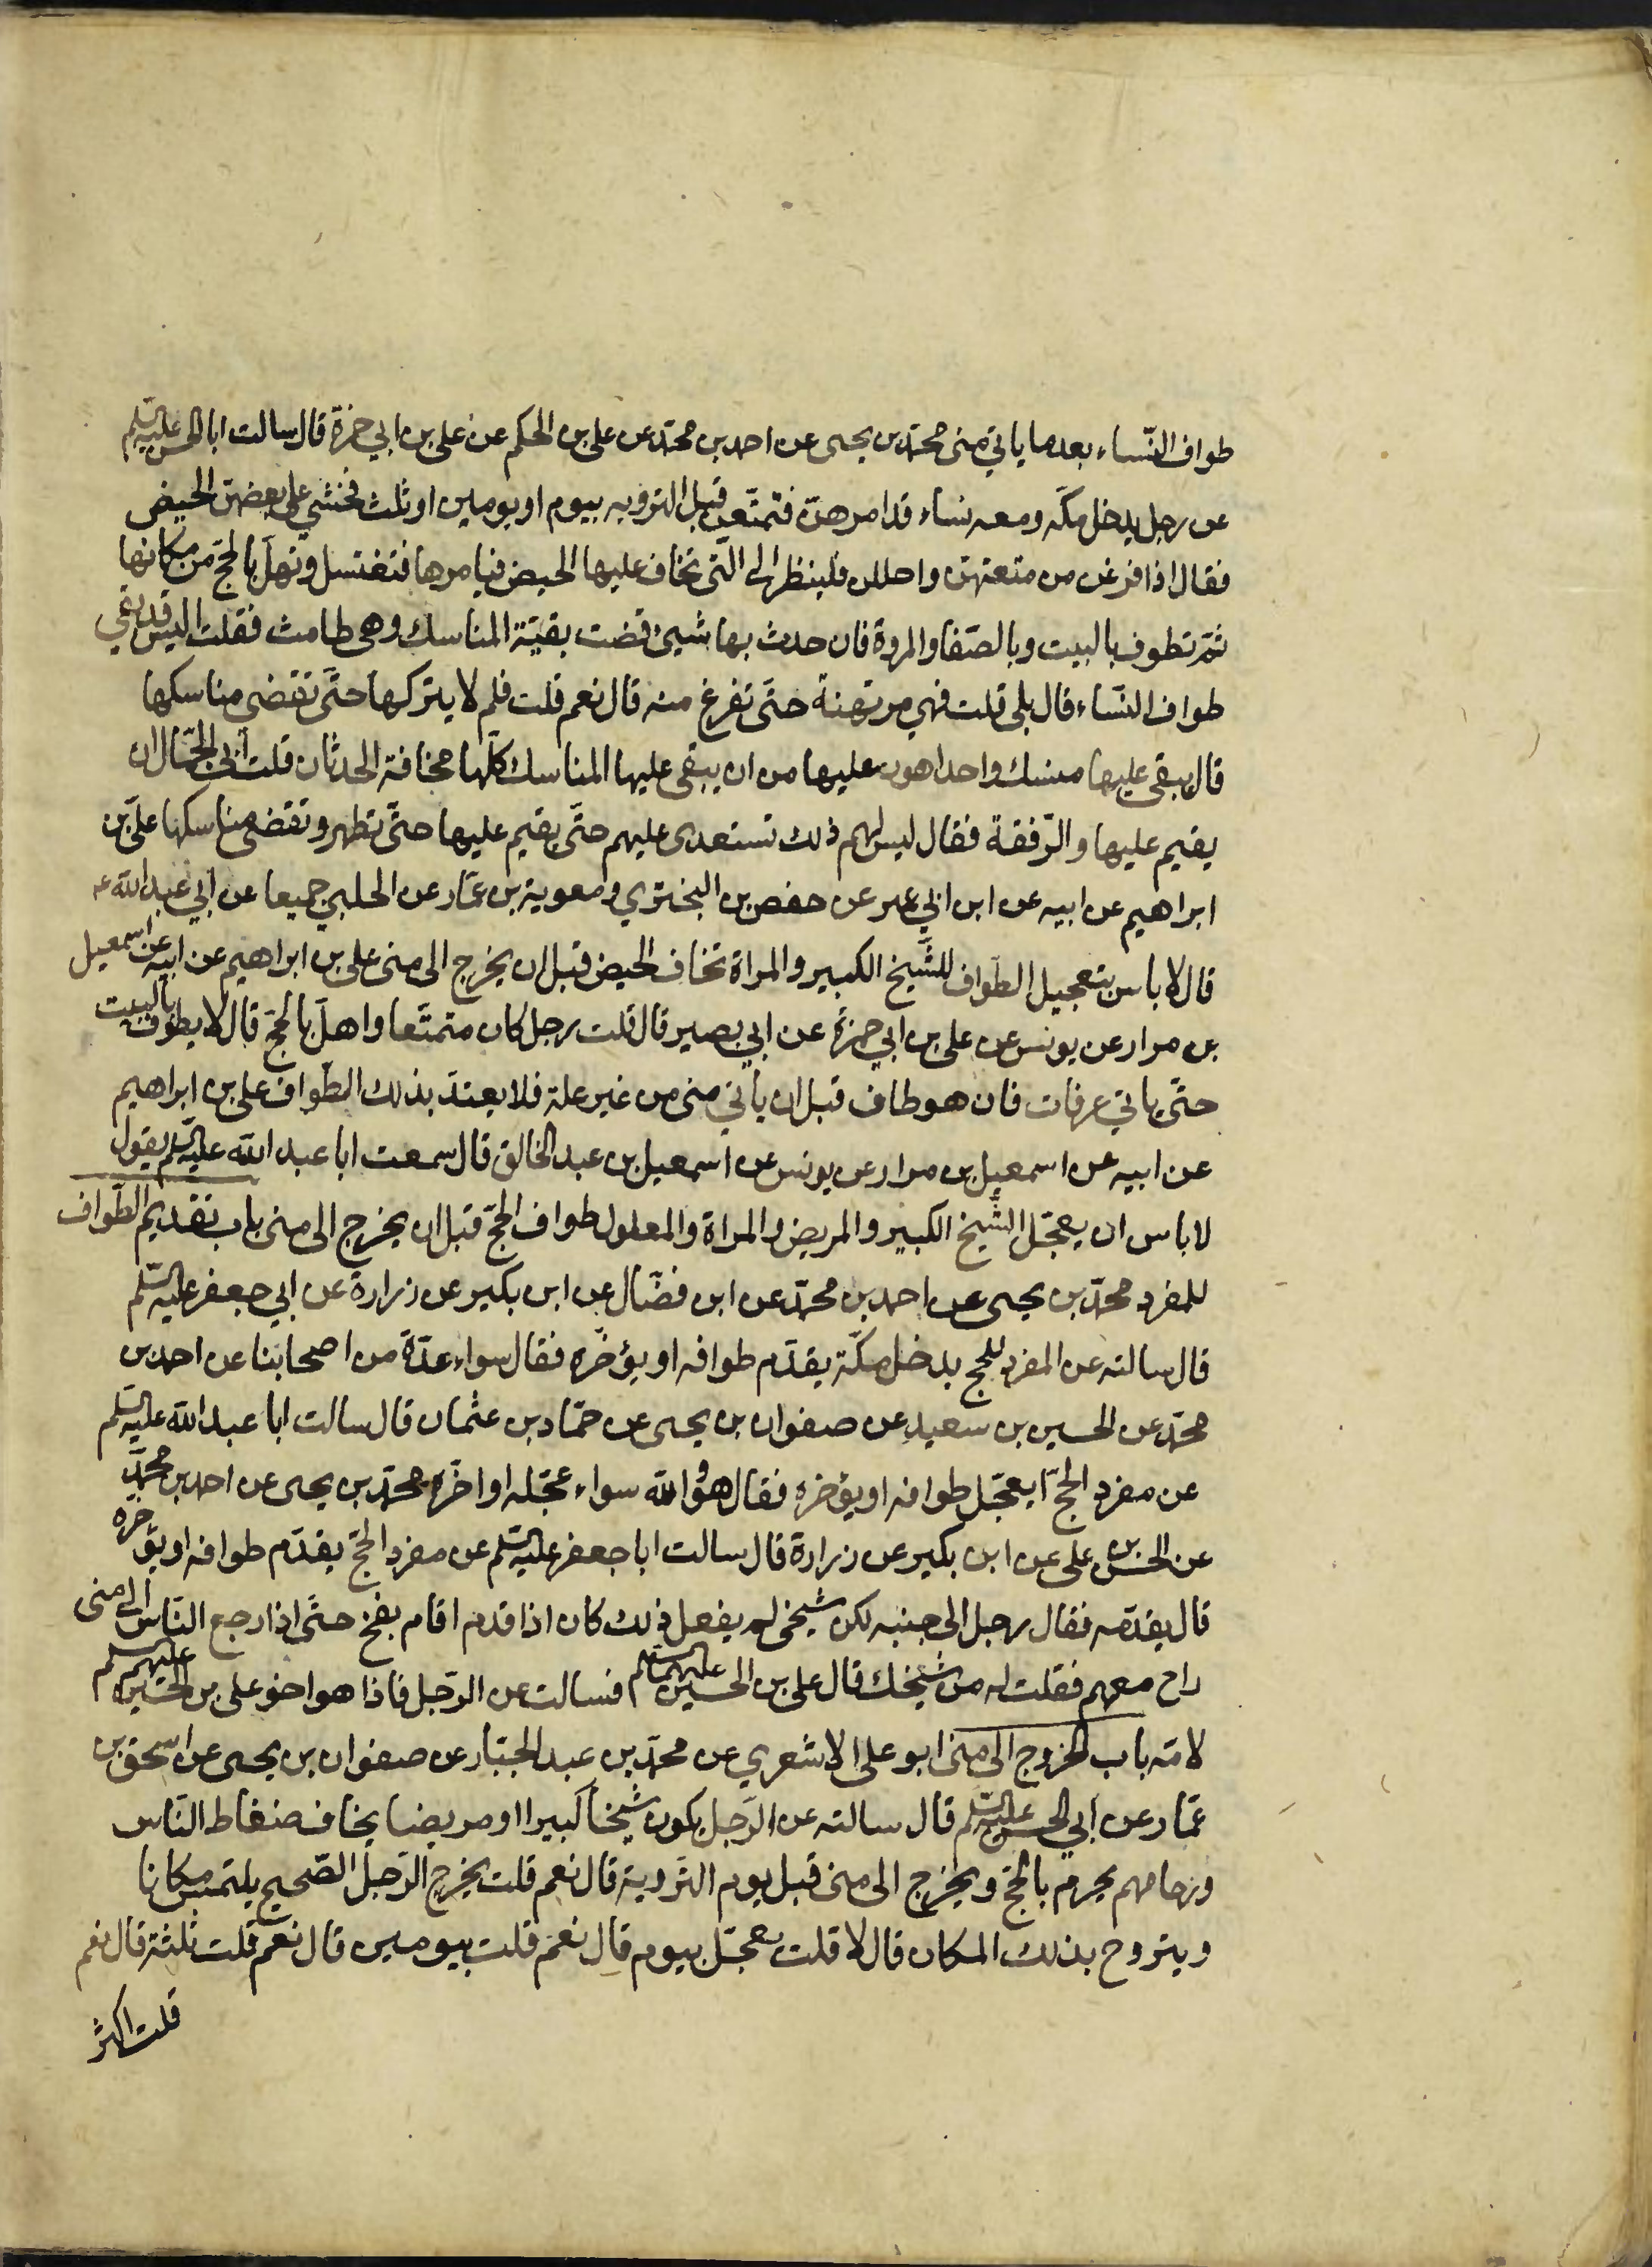 طواف النّساء بعد ما ياتي منى محمّد بن يحيى عن احمد بن محمّد عن على بن الحكم عن على بن ابي حمزة قال سالت ابا الحسن عليه السّلم
عن رجل يدخل مكّه ومعه نساء قد امرهنّ فتمتّعن قبل الترويه بيوم او يومين او ثلث فخشي على بعضهنّ الحيض
فقال اذا فرغن من متعتهنّ واحللن فلينظر الى الّتى يخاف عليها الحيض فيامرها فتغتسل وتهلّ بالحجّ من مكانها
ثمّ تطوف بالبيت وبالصّفا والمروة فان حدث بها شيئ قضت بقيّة المناسك وهى طامث فقلت اليس قد بقي
طواف النّساء قال بلى قلت فهي مرتهنة حتّى تفرغ منه قال نعم قلت فلم لا يتركها حتّى تقضى مناسكها
قال يبقى عليها منسك واحد اهون عليها من ان يبقى عليها المناسك كلّها مخافة الحدثان قلت ابى الجمّال ان
يقيم عليها والرّفقة فقال ليس لهم ذلك تستعدى عليهم حتّى يقيم عليها حتّى تطهر وتقضى مناسكها علىّ بن
ابراهيم عن ابيه عن ابن ابي عمير عن حفص بن البختري ومعوية بن عمّار عن الحلبي جميعا عن ابي عبد اللّه ع
قال لا باس بتعجيل الطّواف للشّيخ الكبير والمراة تخاف الحيض قبل ان يخرج الى منى على بن ابراهيم عن ابيه عن اسمعيل
بن مرار عن يونس عن على بن ابي حمزة عن ابي بصير قال قلت رجل كان متمتّعا واهلّ بالحجّ قال لا يطوف بالبيت
حتّى ياتي عرفات فان هو طاف قبل ان ياتي منى من غير علة فلا يعتدّ بذلك الطّواف على بن ابراهيم
عن ابيه عن اسمعيل بن مرار عن يونس عن اسمعيل بن عبد الخالق قال سمعت ابا عبد اللّه عليه السّلم يقول
لا باس ان يعجّل الشّيخ الكبير والمريض والمراة والمعلول طواف الحجّ قبل ان يخرج الى منى باب تقديم الطّواف
للمفرد محمّد بن يحيى عن احمد بن محمّد عن ابن فضّال عن ابن بكير عن زرارة عن ابي جعفر عليه السّلم
قال سالته عن المفرد للحج يدخل مكّة يقدّم طوافه او يؤخّره فقال سواء عدّة من اصحابنا عن احمد بن
محمّد عن الحسين بن سعيد عن صفوان بن يحيى عن حمّاد بن عثمان قال سالت ابا عبد اللّه عليه السّلم
عن مفرد الحجّ ايعجّل طوافه او يؤخره فقال هو واللّه سواء عجّله او اخّره محمّد بن يحيى عن احمد بن محمّد
عن الحسن بن على عن ابن بكير عن زرارة قال سالت ابا جعفر عليه السّلم عن مفرد الحجّ يقدّم طوافه او يؤخره
قال يقدّمه فقال رجل الى جنبه لكن شيخي لم يفعل ذلك كان اذا قدم اقام بفخ حتّى اذا رجع النّاس الى منى
راح معهم فقلت له من شيخك قال على بن الحسين عليهما السّلم فسالت عن الرّجل فاذا هو اخو على بن الحسين عليهم السلم
لامّه باب الخروج الى منى ابو على الاشعري عن محمّد بن عبد الجبّار عن صفوان بن يحيى عن اسحق بن
عمّار عن ابي الحسن عليه السّلم قال سالته عن الرّجل يكون شيخا كبيرا او مريضا يخاف ضغاط النّاس
وزحامهم يحرم بالحجّ ويخرج الى منى قبل يوم التّروية قال نعم قلت يخرج الرّجل الصّحيح يلتمس مكانا
ويتروح بذلك المكان قال لا قلت يعجّل بيوم قال نعم قلت بيومين قال نعم قلت ثلثة قال نعم
قلت اكثر